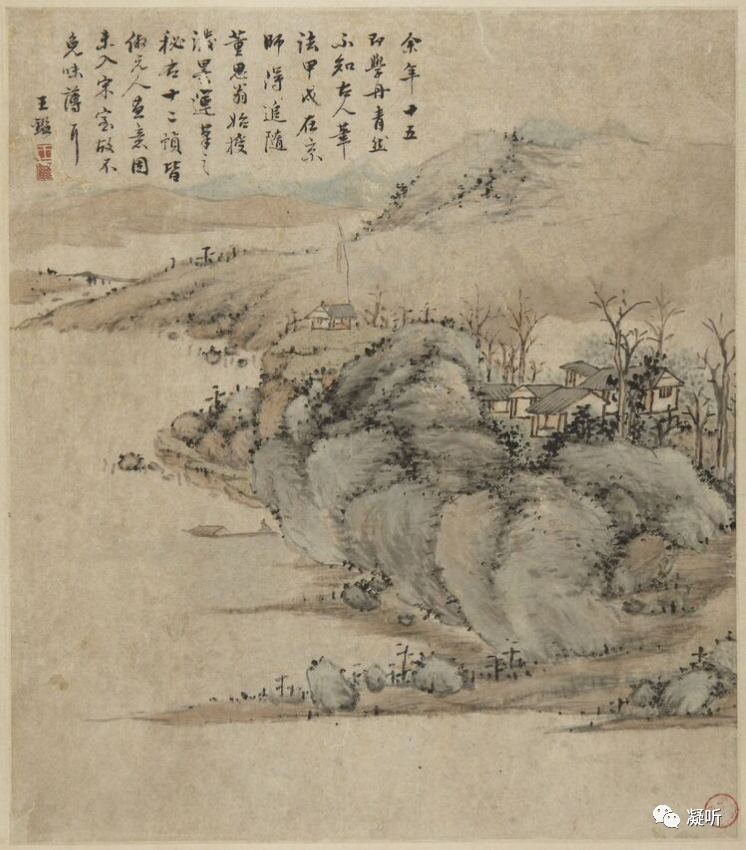 余年十五
即學丹青然
不知古人筆
法甲戌在京
師得追隨
董思翁始授
潑墨運筆之
秘右十二幀皆
倣元人畫意因
未入宋室故不
免味薄耳
王鑑
凝听